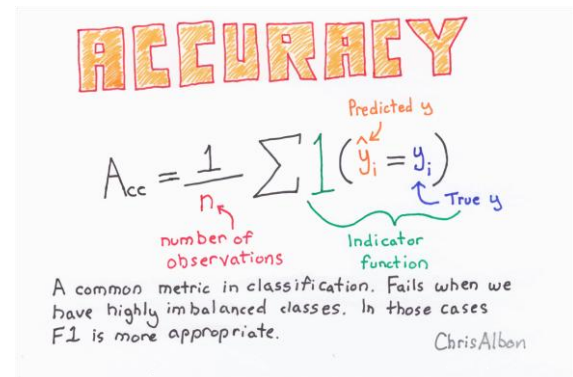 ACCURACY
Predicted y
Acc = 1/n ∑ 1(ŷi = yi)
True y
number of
observations
Indicator
function
A common metric in classification. Fails when we
have highly imbalanced classes. In those cases
F1 is more appropriate.
ChrisAlbon